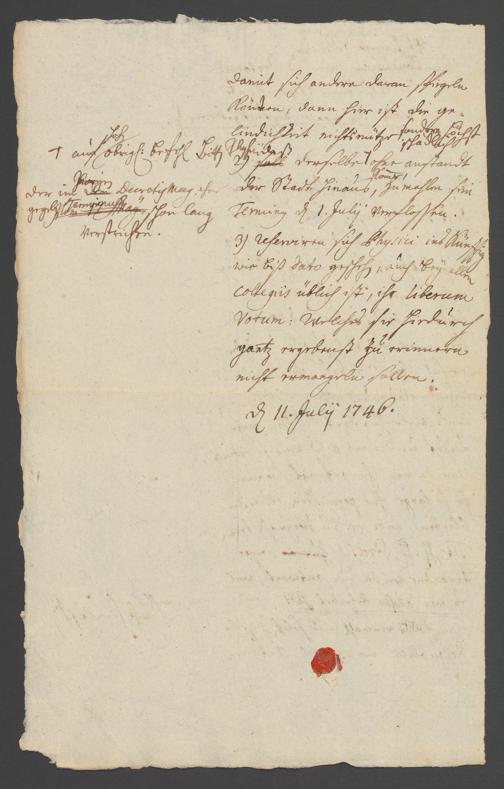 damit sich andere daran spiegeln
können, dann hier ist die ge-
lindigkeit nichts nütze sondern höchst
schädlich
2) daß derselbe ohne anstandt
der Stadt hinaus, zumahlen sein
Termin d. 1. Julij verflossen.
3) reserviren sich Physici ins künfftig
wie biß dato gesch. auch bey allen
collegiis üblich ist, ihr liberum
Votum. Welches sie hiedurch
gantz ergebenst zu erinnern
nicht ermangeln sollen.
d. 11. Julij 1746.
† auf obrigk. Befehl
der in Decreto
schon lang
verstrichen.